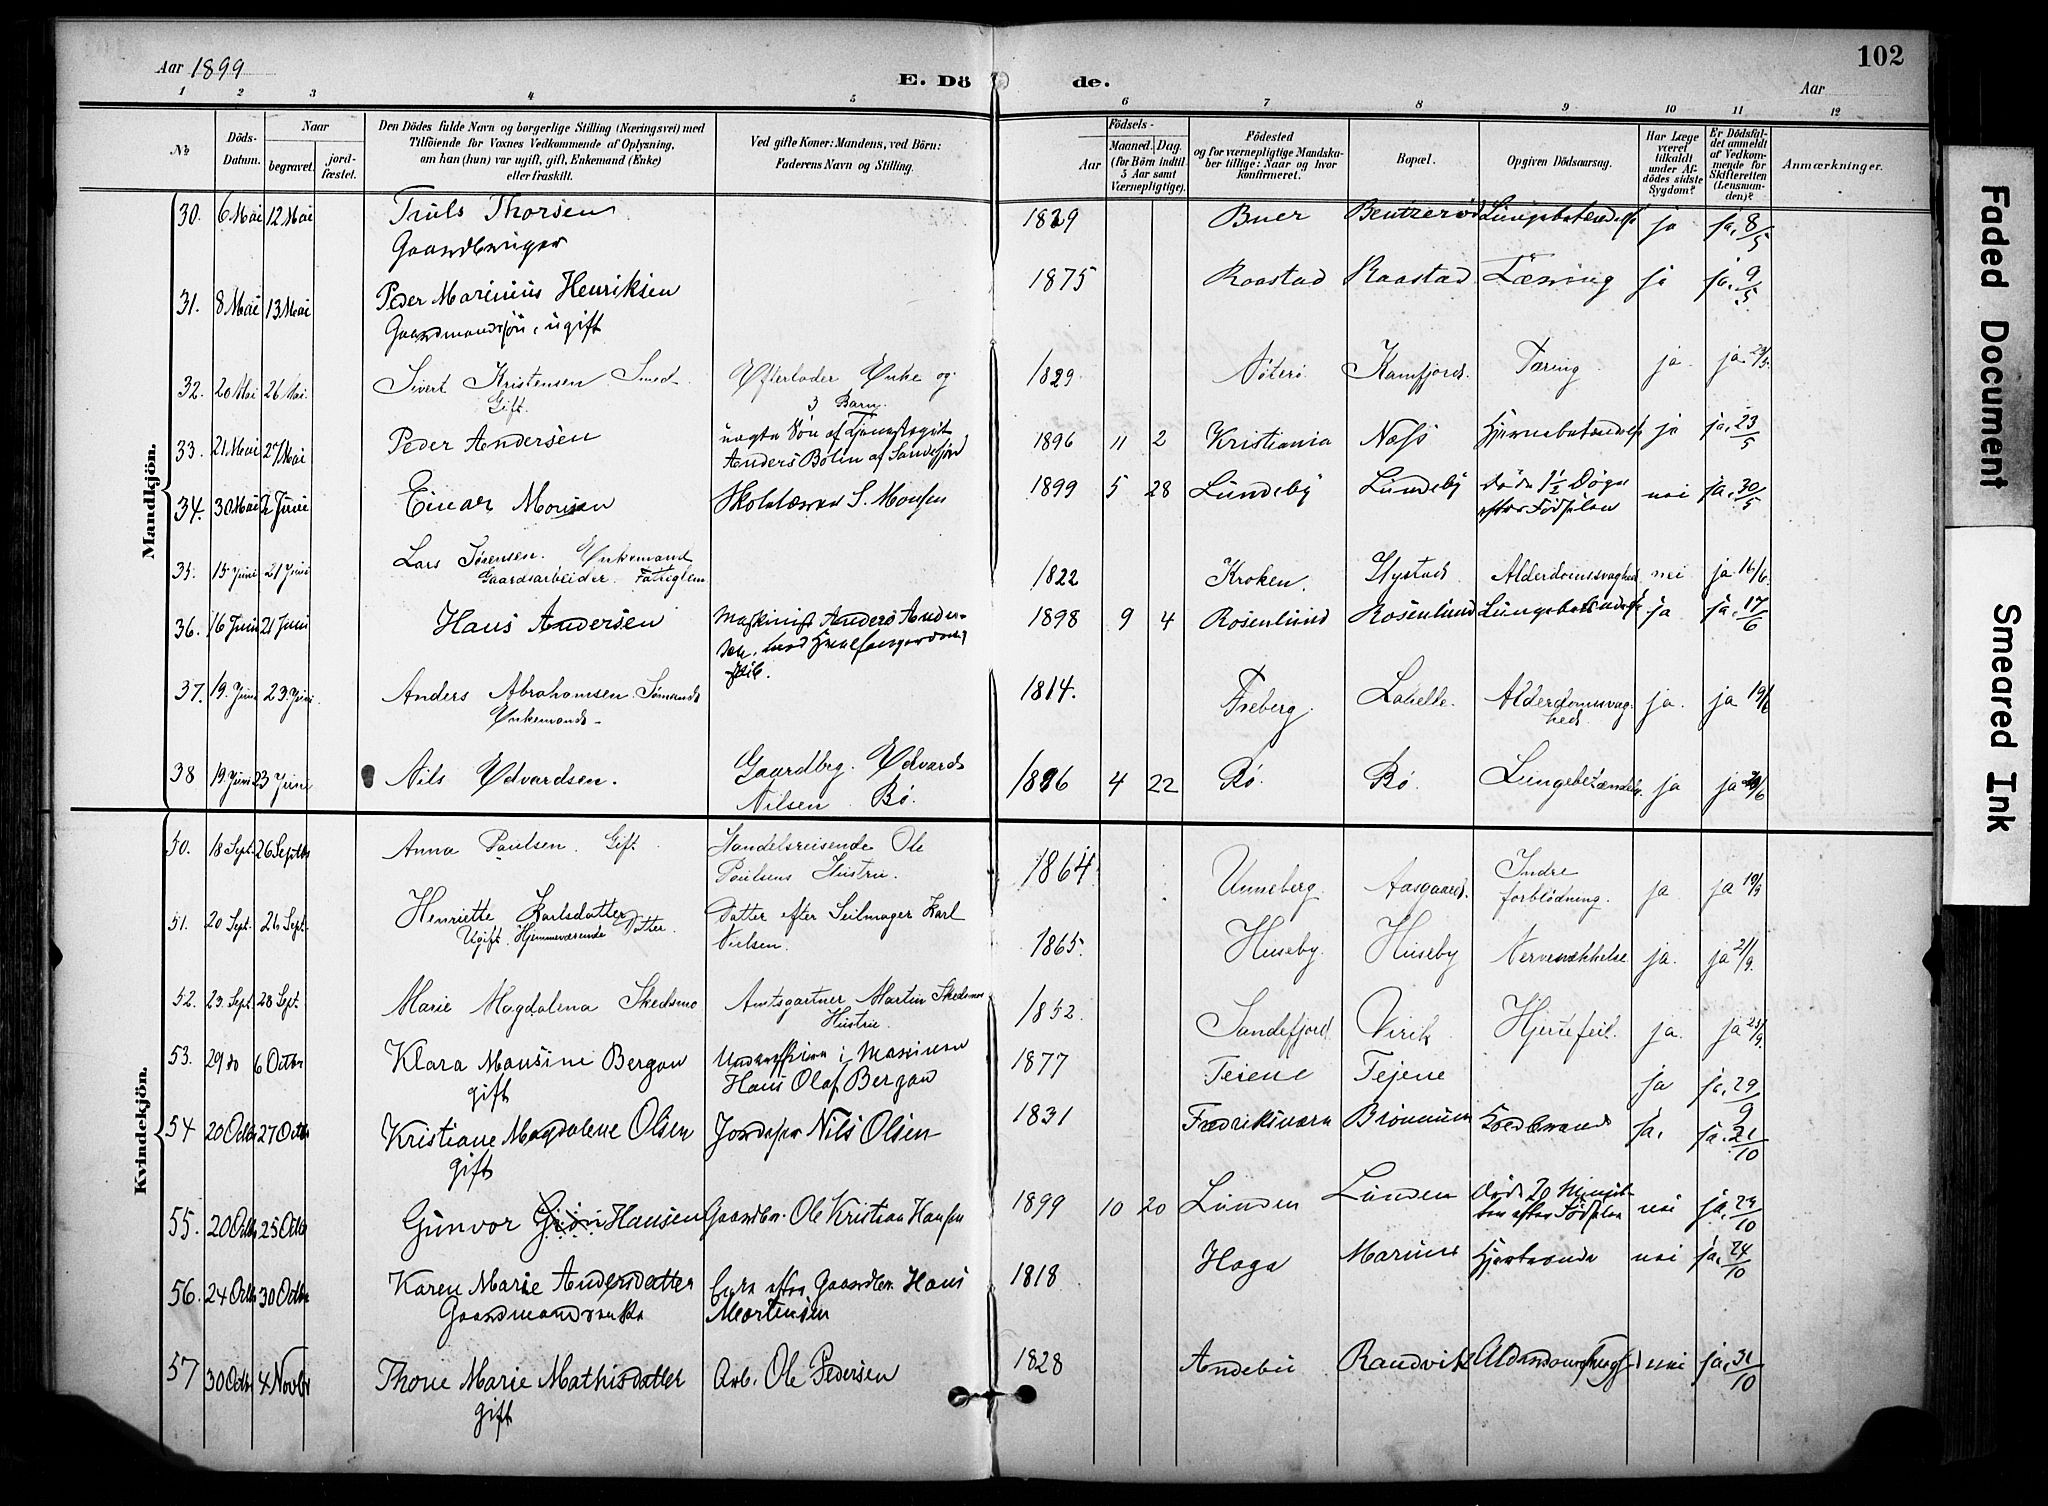 102
Aar 1899
E. Dö de.
Aar
1 2 3 4 5 6 7 8 9 10 11 12
№
Döds-Datum.
Naar
begravet.
jord-fæstet.
Den Dödes fulde Navn og borgerlige Stilling (Næringsvei) med
Tilföiende for Voxnes Vedkommende af Oplysning,
om han (hun) var ugift, gift, Enkemand (Enke)
eller fraskilt.
Ved gifte Koner: Mandens, ved Börn:
Faderens Navn og Stilling.
Födsels-
Aar
Maaned. Dag.
(for Börn indtil
5 Aar samt
Værnepligtige).
Födested
og for værnepligtige Mandska-
ber tillige: Naar og hvor
konfirmeret.
Bopæl.
Opgiven Dödsaarsag.
Har Læge
været
tilkaldt
under Af-
dödes sidste
Sygdom?
Er Dödsfal-
det anmeldt
af Vedkom-
mende for
Skifteretten
(Lensman-
den)?
Anmærkninger.
Mandkjön.
30. 6 Mai 12 Mai Truls Thorsen 1829 Buer Bentzerød ja ja. 8/5
Gaardbruger
31. 8 Mai 13 Mai Peder Marinius Henriksen 1875 Raastad Raastad Tæring ja ja. 9/5
Gaardmandssøn, ugift
32. 20 Mai 26 Mai. Sivert Kristensen. Smed. Efterlader Enke og 1829 Nøterø Kamfjord. Tæring. ja. ja.
Gift. 3 Barn.
33. 21 Mai 27 Mai Peder Andersen uægte Søn af 1896 11 2 Kristiania Næss Hjernebetændelse ja ja. 23/5
Anders Bolin af Sandefjord
34. 30 Mai 2 Juni Einar Monsen S. Monsen 1899 5 28 Lundeby Lundeby døde 1½ Døgn nei ja. 30/5
efter Fødselen
35. 15 Juni 21 Juni Lars Sørensen. Enkemand 1822 Kroken. Hystad. Alderdomssvaghed nei ja 16/6.
Gaardsarbeider. Fattiglem
36. 16 Juni 21 Juni Hans Andersen Maskinist Anders Ander- 1898 9 4 Rosenlund Rosenlund Lungebetændelse ja ja. 17/6
sen, med
37. 19. Juni 23. Juni. Anders Abrahamsen. Sømand 1814. Freberg. Labelle. Alderdomssvag- ja. ja 19/6
Enkemand. hed.
38 19. Juni 23 Juni Nils Edvardsen. Gaardbrg. Edvard 1896 4 22 Bø. Bø. Lungebetændelse ja ja
Nilsen Bø.
Kvindekjön.
50. 18 Sept. 26 Septbr Anna Paulsen. Gift. Handelsreisende Ole 1864. Unneberg. Aasgaard. Indre ja ja 19/9
Paulsens Hustru. forblödning.
51. 20 Sept. 26 Sept. Henriette Karlsdatter Datter efter Seilmager Karl 1865. Huseby. Huseby Nervesvækkelse ja. ja 21/9.
Ugift. Hjemmeværende Datter. Nielsen.
52. 23 Sept. 28 Sept. Marie Magdalena Skedsmo Amtsgartner Martin Skedsmos 1852. Sandefjord. Virik Hjertefeil. ja. ja
Hustru.
53. 29 do 6 Octbr Klara Mausine Bergan Underofficer i Marinen 1877 Feiene Fejene ja ja. 29/9
gift Hans Olaf Bergan
54 20 Octbr 27 Octbr Kristiane Magdalene Olsen Nils Olsen 1831 Fredriksværn Koldbrand ja. ja. 21/10
gift
55. 20 Octbr 25 Octbr Gunvor Hansen Gaardbr. Ole Kristian Hansen 1899 10 20 Lunden Lunden døde 20 Minut- nei ja. 24/10
ter efter Fødselen
56. 24 Octbr 30 Octbr Karen Marie Andersdatter Enke efter Gaardbr. Hans 1818 Haga nei ja. 24/10
Gaardmandsenke Mortensen
57 30 Octbr 4 Novbr Thone Marie Mathisdatter Arb. Ole Pedersen 1828 Andebu Randvik nei ja. 31/10
gift
Faded Document
Smeared Ink